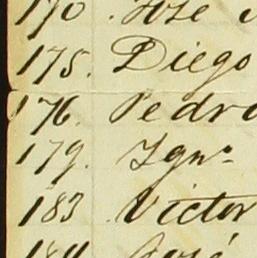 170 . José
175. Diego
176. Pedro
179. Ygn.º
183 Victor
184 José